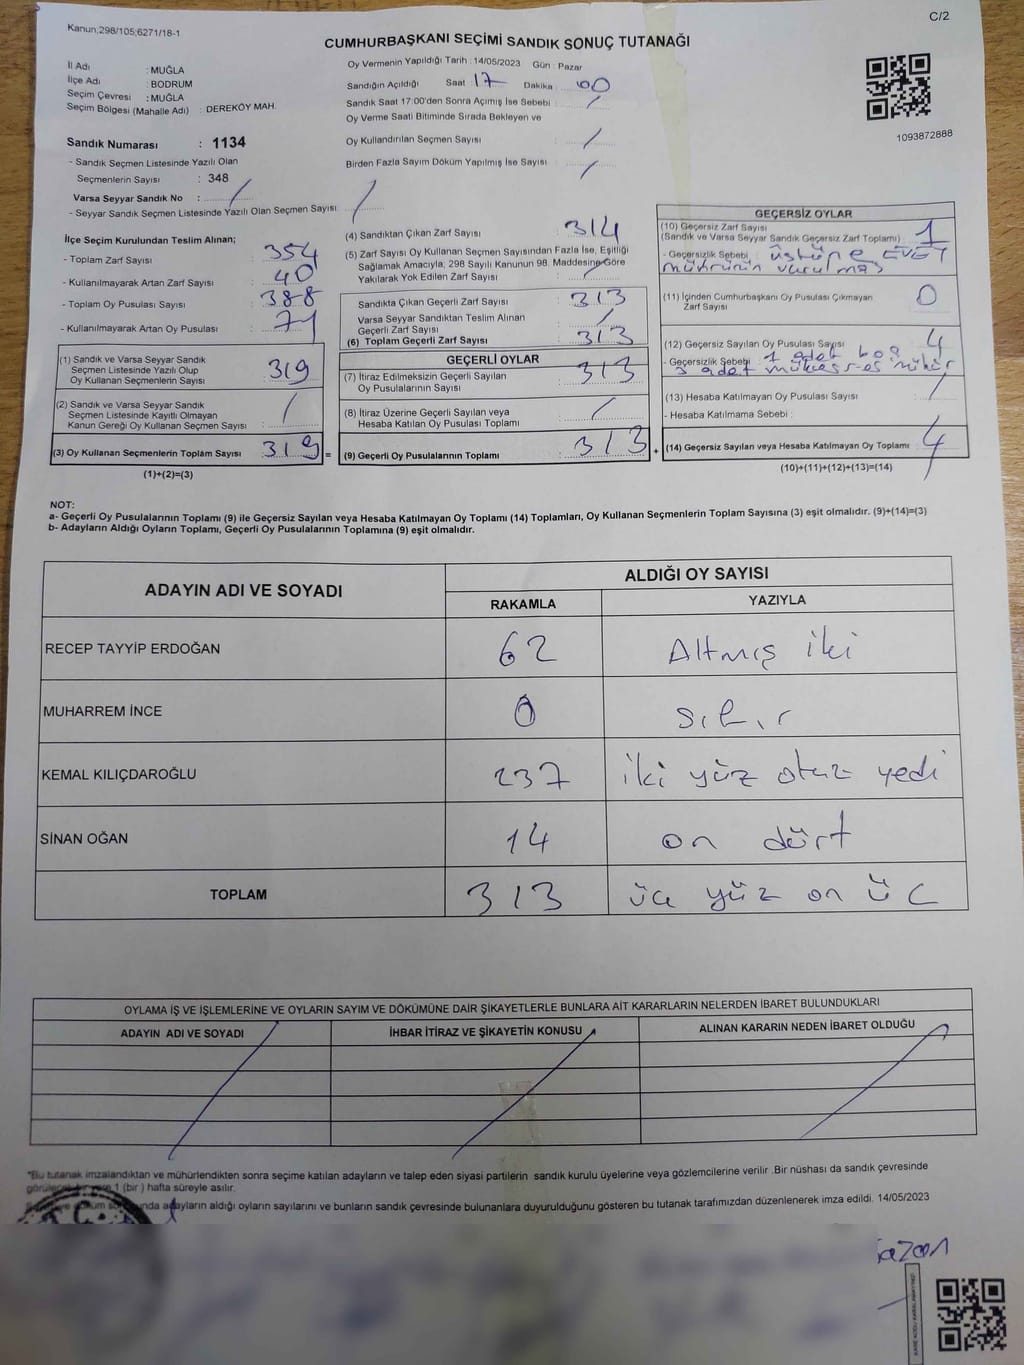 Kanun,298/105;6271/18-1
C/2
CUMHURBAŞKANI SEÇİMİ SANDIK SONUÇ TUTANAĞI
İl Adı : MUĞLA
İlçe Adı : BODRUM
Seçim Çevresi : MUĞLA
Seçim Bölgesi (Mahalle Adı) : DEREKÖY MAH.
Oy Vermenin Yapıldığı Tarih : 14/05/2023 Gün : Pazar
Sandığın Açıldığı Saat : 17 Dakika : 00
Sandık Saat 17:00'den Sonra Açımış İse Sebebi : /
Oy Verme Saati Bitiminde Sırada Bekleyen ve
Oy Kullandırılan Seçmen Sayısı : /
Birden Fazla Sayım Döküm Yapılmış İse Sayısı : /
1093872888
Sandık Numarası : 1134
- Sandık Seçmen Listesinde Yazılı Olan
Seçmenlerin Sayısı : 348
Varsa Seyyar Sandık No : /
- Seyyar Sandık Seçmen Listesinde Yazılı Olan Seçmen Sayısı : /
İlçe Seçim Kurulundan Teslim Alınan;
- Toplam Zarf Sayısı : 354
- Kullanılmayarak Artan Zarf Sayısı : 40
- Toplam Oy Pusulası Sayısı : 388
- Kullanılmayarak Artan Oy Pusulası : 71
(1) Sandık ve Varsa Seyyar Sandık
Seçmen Listesinde Yazılı Olup
Oy Kullanan Seçmenlerin Sayısı : 319
(2) Sandık ve Varsa Seyyar Sandık
Seçmen Listesinde Kayıtlı Olmayan
Kanun Gereği Oy Kullanan Seçmen Sayısı : /
(3) Oy Kullanan Seçmenlerin Toplam Sayısı : 319 =
(1)+(2)=(3)
(4) Sandıktan Çıkan Zarf Sayısı : 314
(5) Zarf Sayısı Oy Kullanan Seçmen Sayısından Fazla İse, Eşitliği
Sağlamak Amacıyla, 298 Sayılı Kanunun 98. Maddesine Göre
Yakılarak Yok Edilen Zarf Sayısı : /
Sandıkta Çıkan Geçerli Zarf Sayısı : 313
Varsa Seyyar Sandıktan Teslim Alınan
Geçerli Zarf Sayısı : /
(6) Toplam Geçerli Zarf Sayısı : 313
GEÇERLİ OYLAR
(7) İtiraz Edilmeksizin Geçerli Sayılan
Oy Pusulalarının Sayısı : 313
(8) İtiraz Üzerine Geçerli Sayılan veya
Hesaba Katılan Oy Pusulası Toplamı : /
(9) Geçerli Oy Pusulalarının Toplamı : 313 +
GEÇERSİZ OYLAR
(10) Geçersiz Zarf Sayısı
(Sandık ve Varsa Seyyar Sandık Geçersiz Zarf Toplamı) : 1
- Geçersizlik Sebebi : üstüne EVET
mührünün vurulması
(11) İçinden Cumhurbaşkanı Oy Pusulası Çıkmayan
Zarf Sayısı : 0
(12) Geçersiz Sayılan Oy Pusulası Sayısı : 4
- Geçersizlik Sebebi : 1 adet boş
3 adet mühür
(13) Hesaba Katılmayan Oy Pusulası Sayısı : /
- Hesaba Katılmama Sebebi :
(14) Geçersiz Sayılan veya Hesaba Katılmayan Oy Toplamı : 4
(10)+(11)+(12)+(13)=(14)
NOT:
a- Geçerli Oy Pusulalarının Toplamı (9) ile Geçersiz Sayılan veya Hesaba Katılmayan Oy Toplamı (14) Toplamları, Oy Kullanan Seçmenlerin Toplam Sayısına (3) eşit olmalıdır. (9)+(14)=(3)
b- Adayların Aldığı Oyların Toplamı, Geçerli Oy Pusulalarının Toplamına (9) eşit olmalıdır.
ADAYIN ADI VE SOYADI ALDIĞI OY SAYISI
RAKAMLA YAZIYLA
RECEP TAYYİP ERDOĞAN 62 Altmış iki
MUHARREM İNCE 0 sıfır
KEMAL KILIÇDAROĞLU 237 iki yüz otuz yedi
SİNAN OĞAN 14 on dört
TOPLAM 313 üç yüz on üç
OYLAMA İŞ VE İŞLEMLERİNE VE OYLARIN SAYIM VE DÖKÜMÜNE DAİR ŞİKAYETLERLE BUNLARA AİT KARARLARIN NELERDEN İBARET BULUNDUKLARI
ADAYIN ADI VE SOYADI İHBAR İTİRAZ VE ŞİKAYETİN KONUSU ALINAN KARARIN NEDEN İBARET OLDUĞU
*Bu tutanak imzalandıktan ve mühürlendikten sonra seçime katılan adayların ve talep eden siyasi partilerin sandık kurulu üyelerine veya gözlemcilerine verilir .Bir nüshası da sandık çevresinde
1 (bir ) hafta süreyle asılır.
adayların aldığı oyların sayılarını ve bunların sandık çevresinde bulunanlara duyurulduğunu gösteren bu tutanak tarafımızdan düzenlenerek imza edildi. 14/05/2023